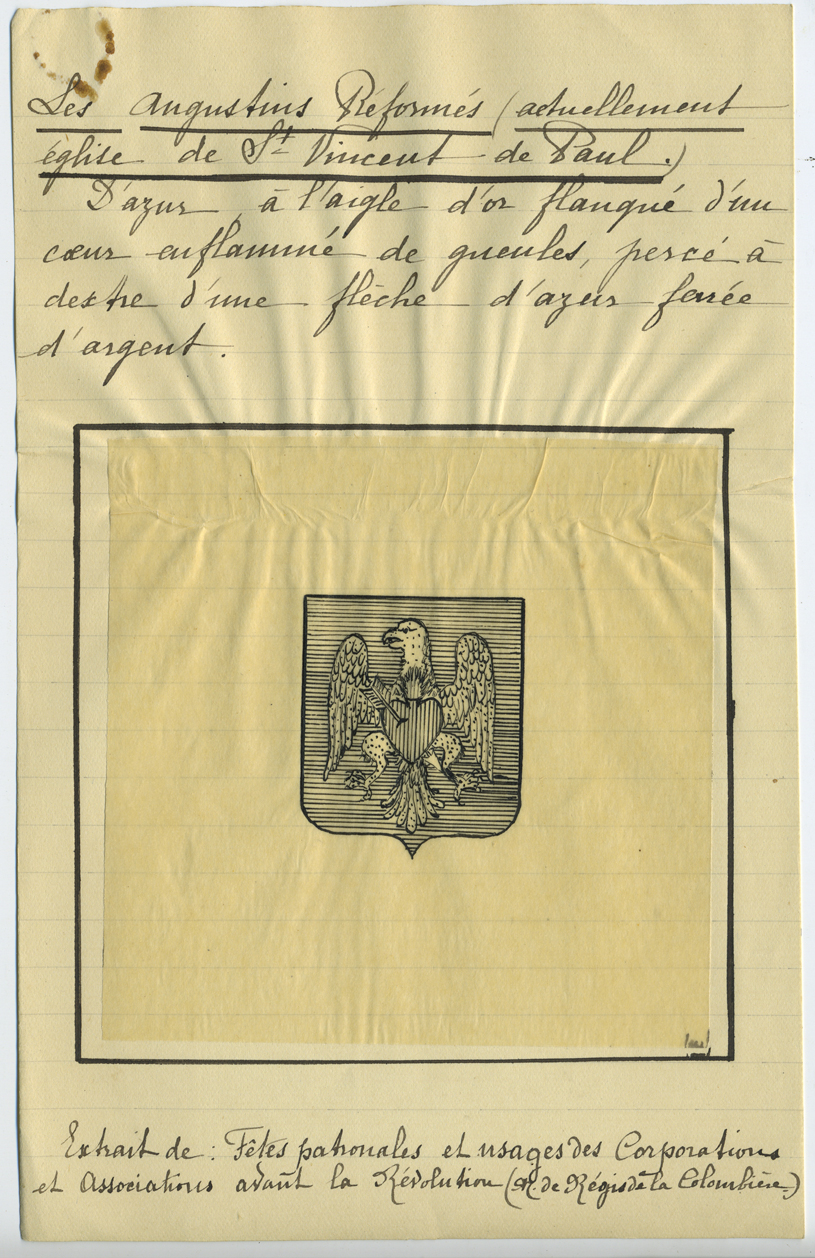 Les Augustins Réformés (actuellement
église de St Vincent de Paul.)
D'azur, à l'aigle d'or flanqué d'un
cœur enflammé de gueules, percé à
dextre d'une flèche d'azur ferrée
d'argent.
Extrait de : Fêtes patronales et usages des Corporations
et Associations avant la Révolution (M. de Régis de la Colombière.)